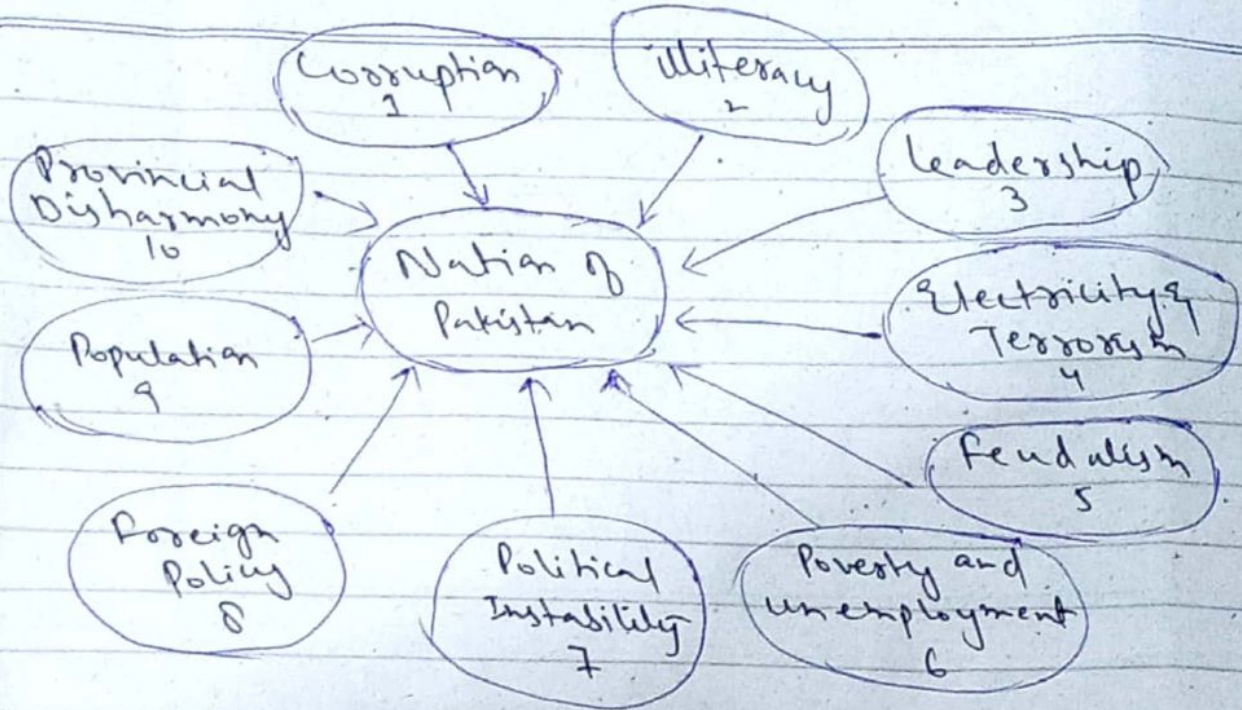 Corruption
1
illiteracy
2
leadership
3
Electricity &
Terrorism
4
Feudalism
5
Poverty and
unemployment
6
Political
Instability
7
Foreign
Policy
8
Population
9
Provincial
Disharmony
10
Nation of
Pakistan